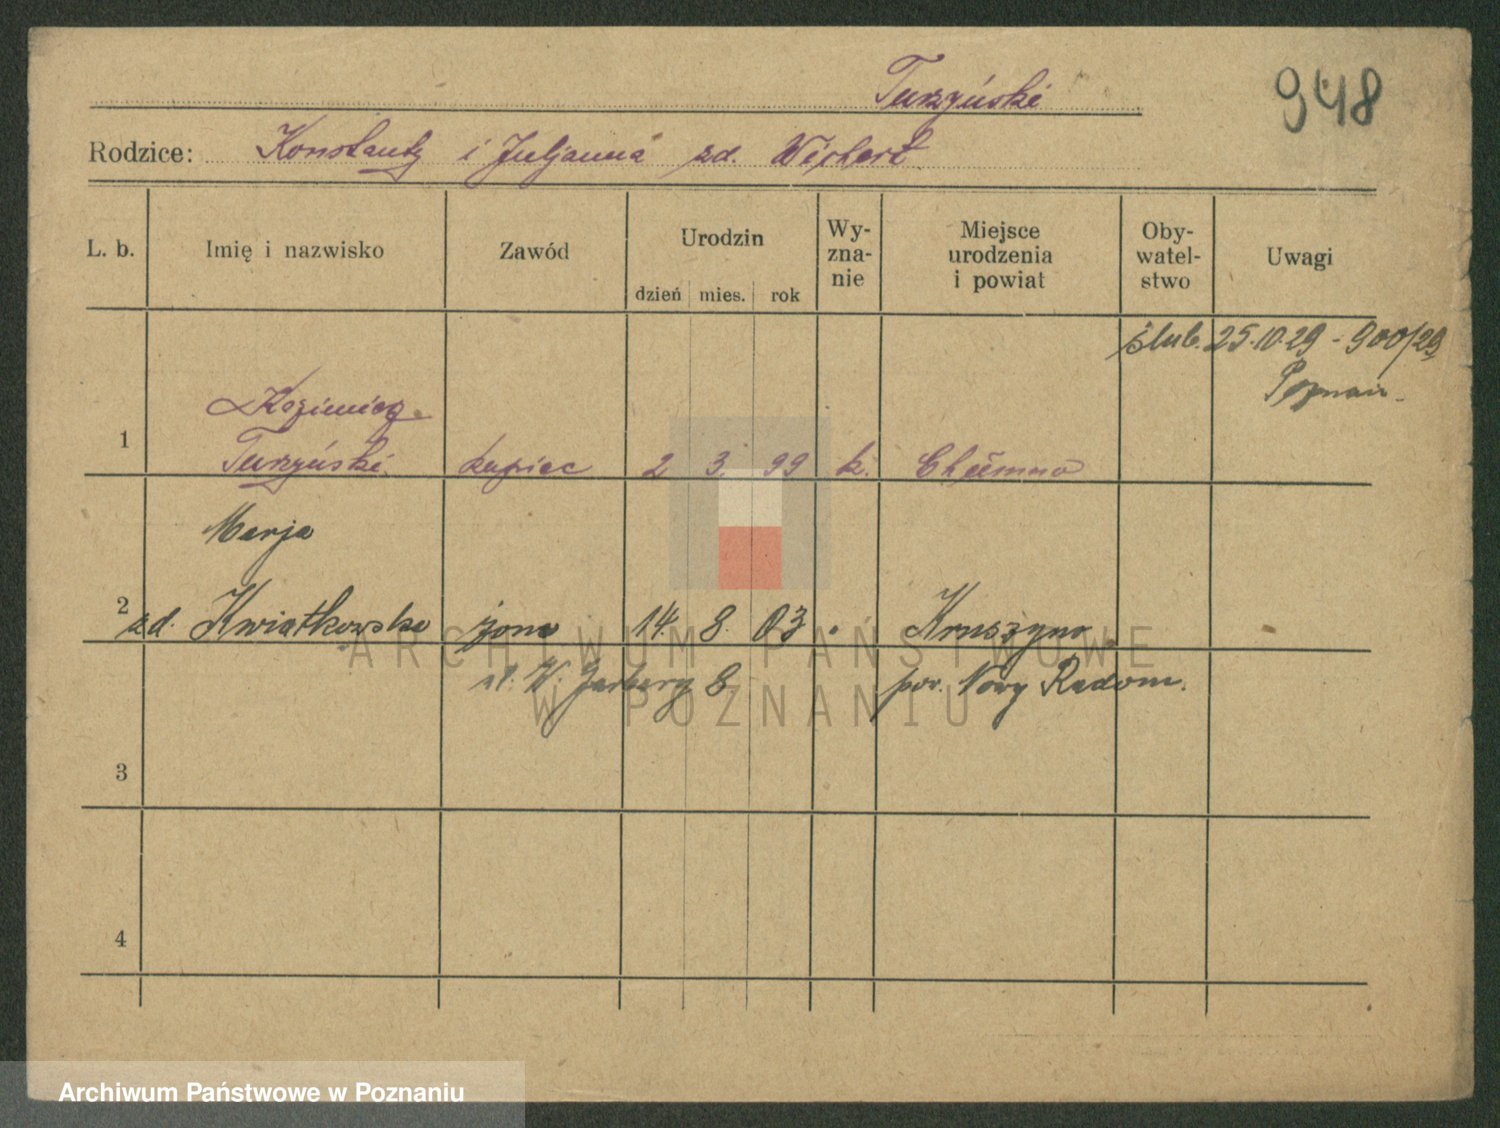 Turzyński
948
Rodzice: Konstanty i Juljanna zd. Wichert
L. b.
Imię i nazwisko
Zawód
Urodzin
dzień mies. rok
Wy-
zna-
nie
Miejsce
urodzenia
i powiat
Oby-
watel-
stwo
Uwagi
ślub. 25.10.29 - 900/29
Poznań
1 Kazimierz
Turzyński kupiec 2 3. 99 k. Chełmno
Marja
2 zd. Kwiatkowska żona 14. 8. 03 Kruszyna
8 pow. Nowy Radom.
3
4
ARCHIWUM PAŃSTWOWE
W POZNANIU
Archiwum Państwowe w Poznaniu